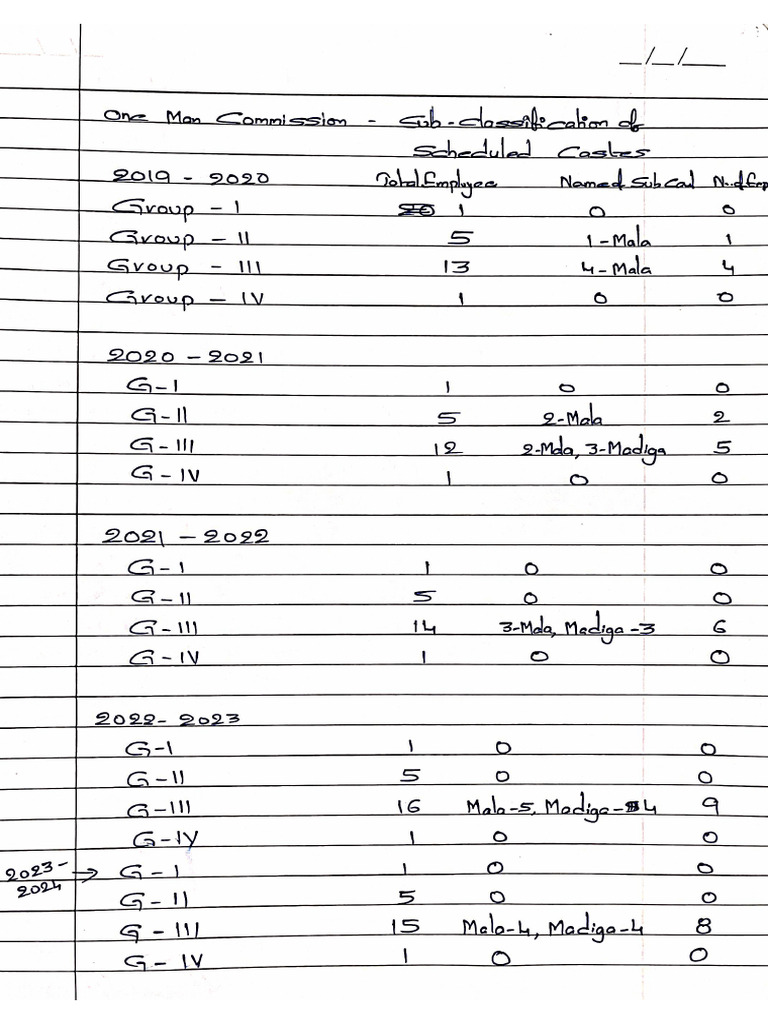 _/_/__
One Man Commission - Sub-classification of
Scheduled Castes
2019 - 2020 Total Employee Named Sub Cad No.of Emp
Group - I 1 0 0
Group - II 5 1-Mala 1
Group - III 13 4-Mala 4
Group - IV 1 0 0
2020 - 2021
G-I 1 0 0
G-II 5 2-Mala 2
G-III 12 2-Mala, 3-Madiga 5
G-IV 1 0 0
2021 - 2022
G-I 1 0 0
G-II 5 0 0
G-III 14 3-Mala, Madiga-3 6
G-IV 1 0 0
2022-2023
G-I 1 0 0
G-II 5 0 0
G-III 16 Mala-5, Madiga-4 9
G-IV 1 0 0
2023-2024 → G-I 1 0 0
G-II 5 0 0
G-III 15 Mala-4, Madiga-4 8
G-IV 1 0 0